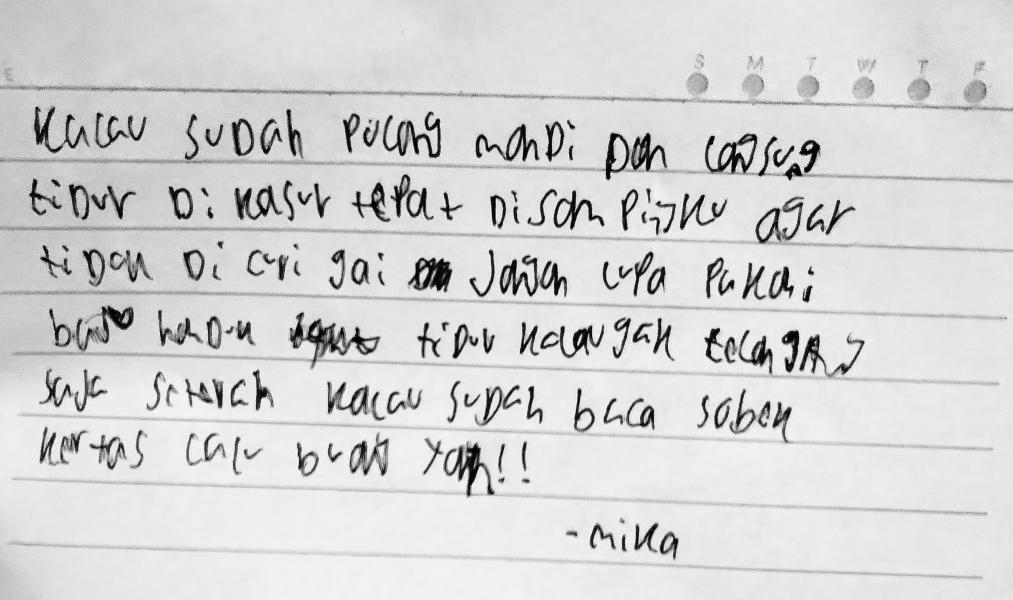 E
S M T W T F
Kalau sudah pulang mandi dan langsung
tidur di kasur tepat disampingku agar
tidak di curi gai Jangan lupa pakai
baju handuk tidur kalau gak telanjang
saja setelah kalau sudah baca sobek
kertas lalu buat yah!!
-mika